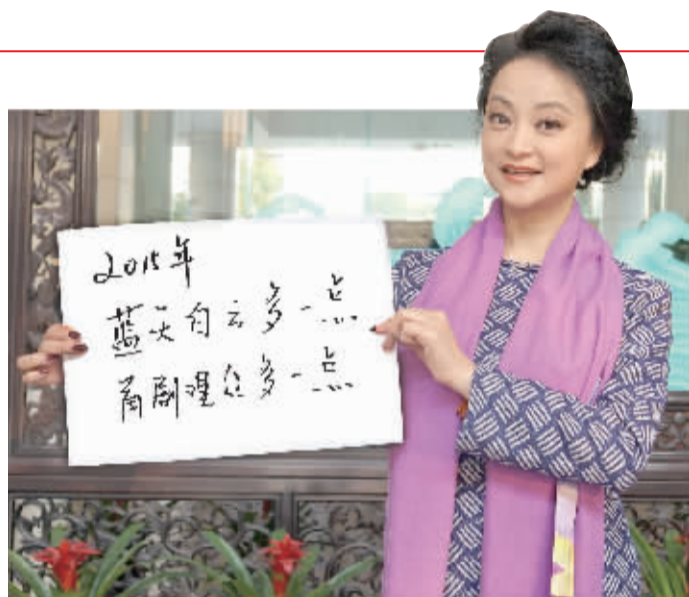 2015年
蓝天白云多一点
甬剧多一点